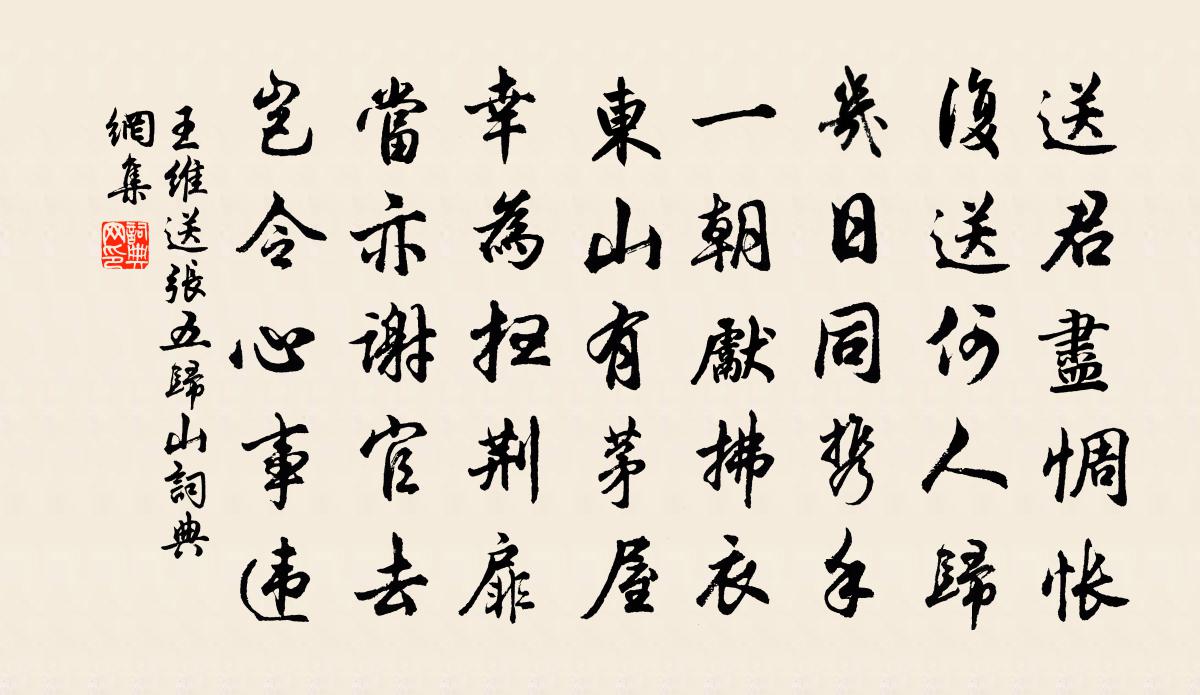 送君盡惆悵
復送何人歸
幾日同攜手
一朝獻拂衣
東山有茅屋
幸為掃荊扉
當亦謝官去
豈令心事違
王維送張五歸山詞典
網集
詞典
网印